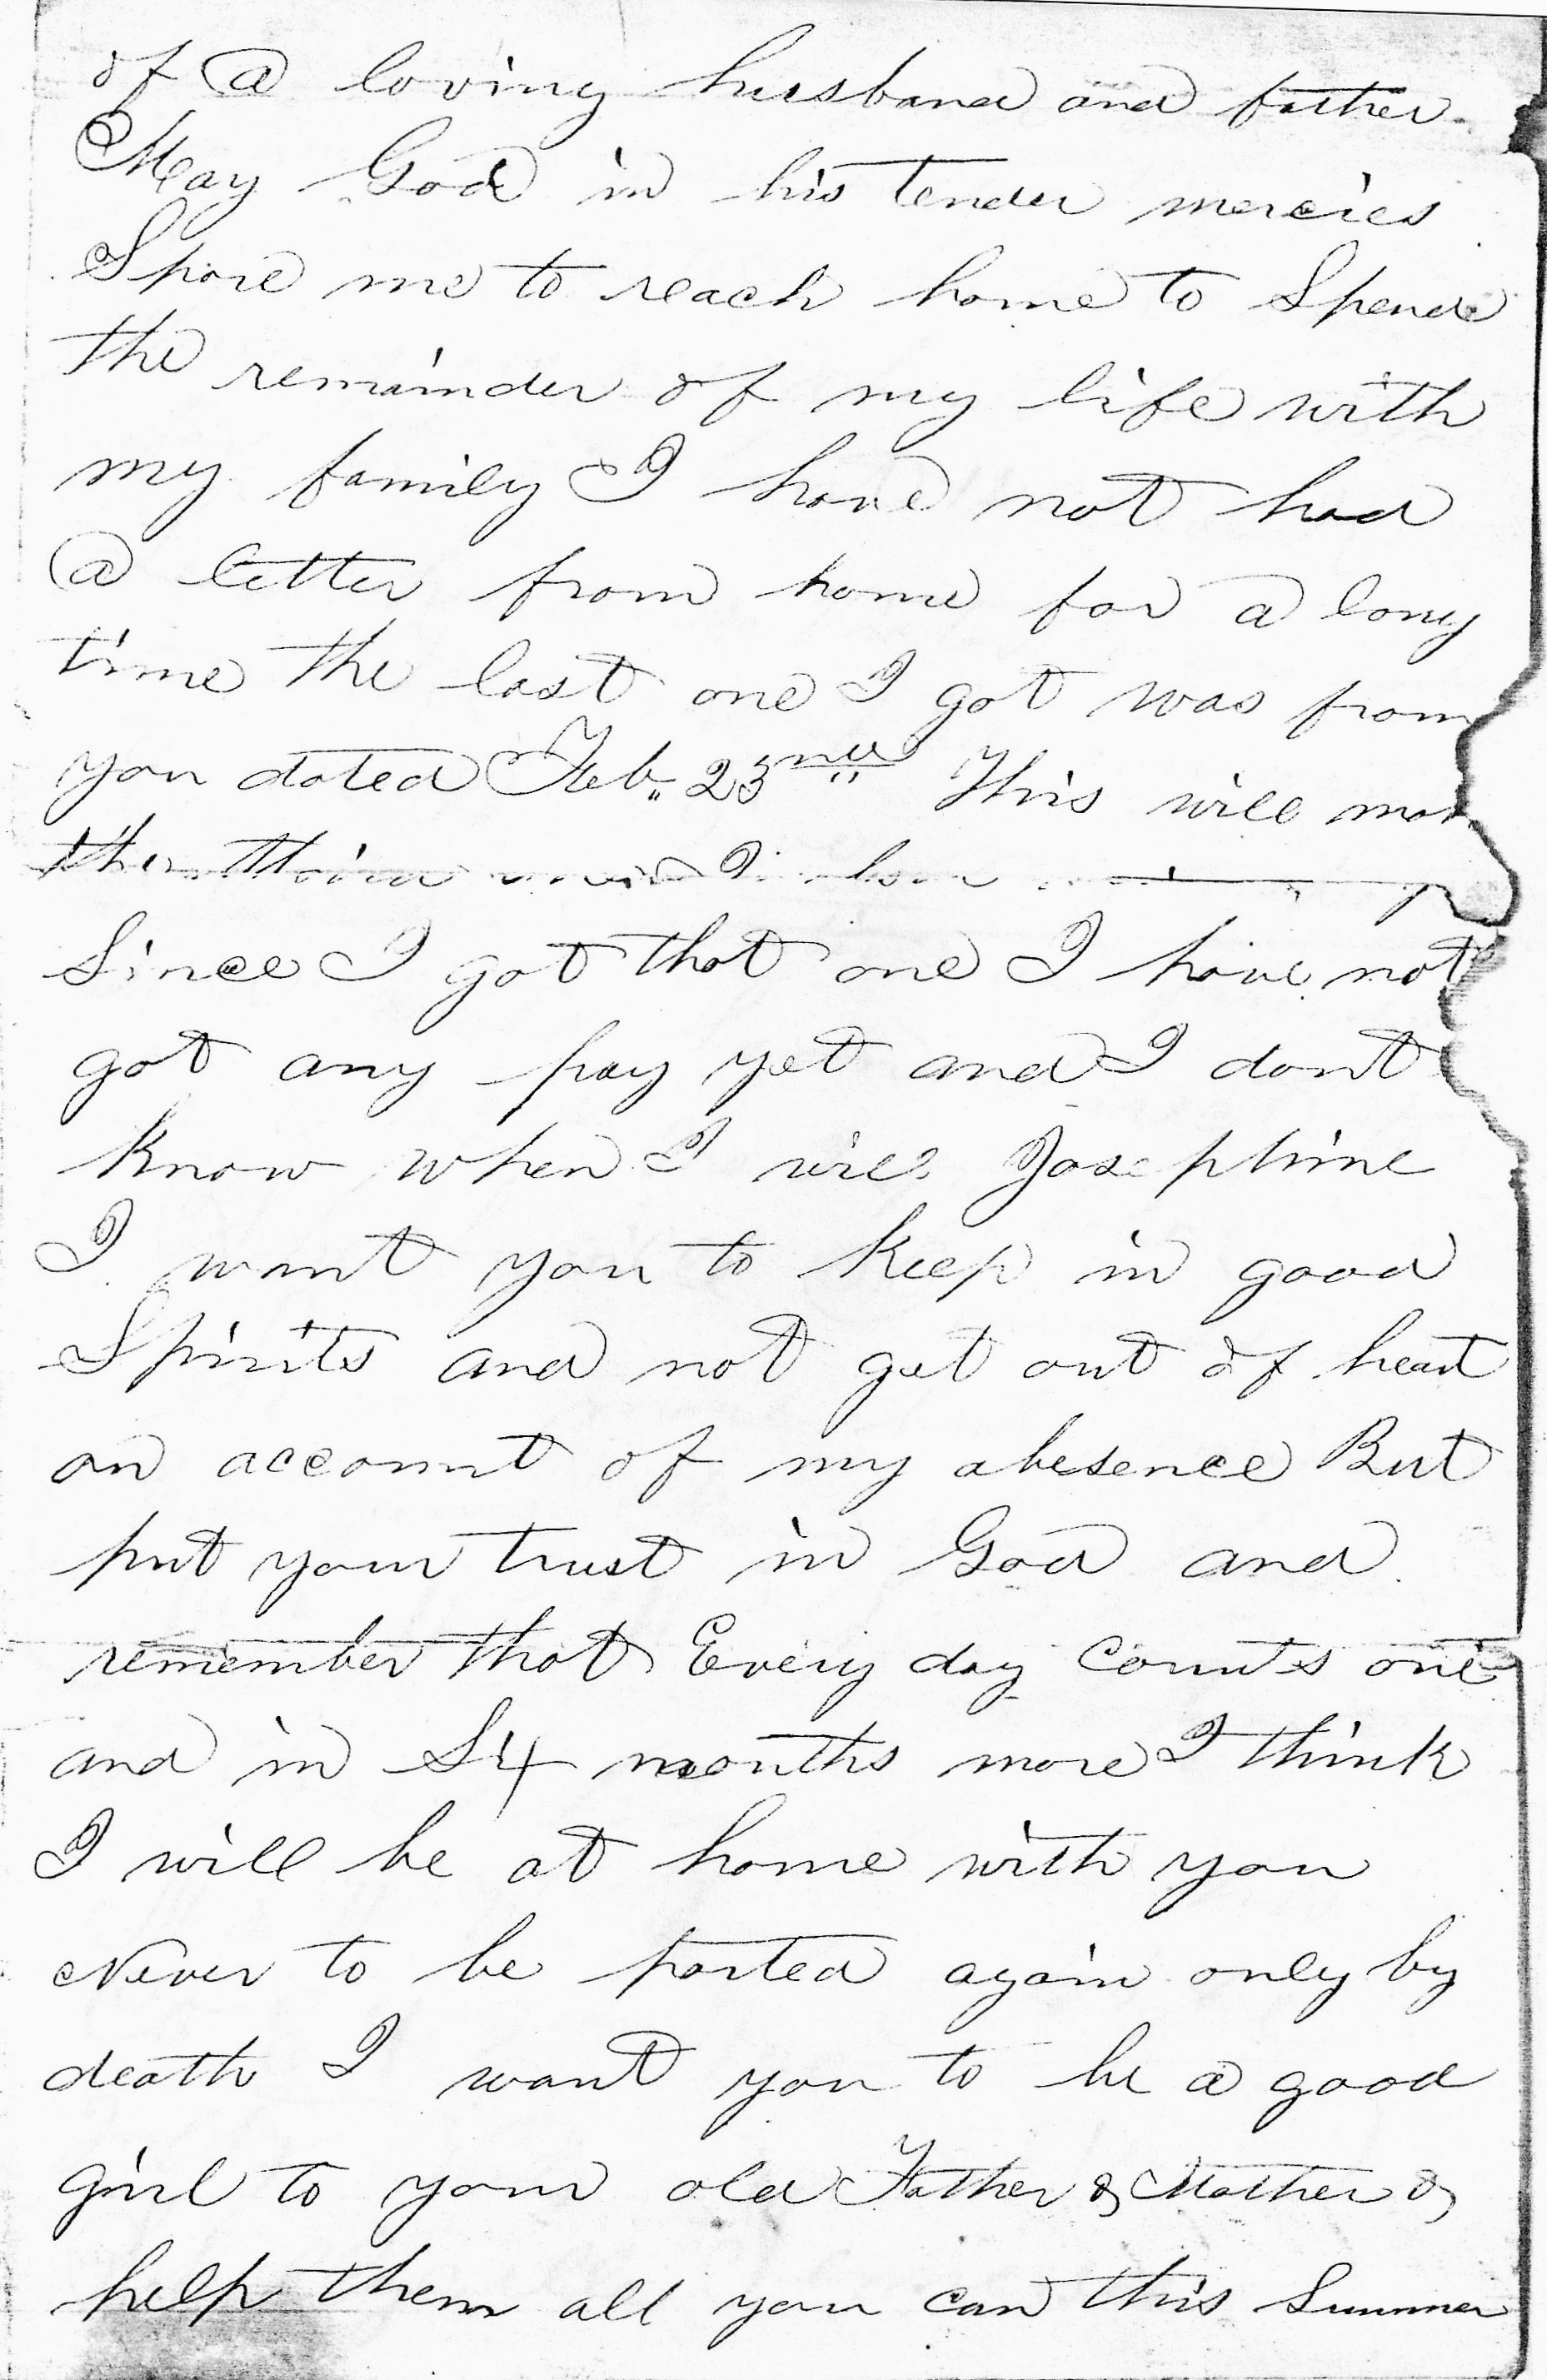 of a loving husband and father.
May God in his tender mercies
Spare me to reach home to Spend
the remainder of my life with
my family I have not had
a letter from home for a long
time the last one I got was from
you dated Feb. 23nd This will
the third I have
Since I got that one I have not
got any pay yet and I dont
know when I will Josephine
I want you to keep in good
Spirits and not get out of heart
on account of my abesence But
put your trust in God and
remember that Every day Counts one
and in months more I think
I will be at home with you
Never to be parted again only by
death I want you to be a good
girl to your old Father & Mother &
help them all you can this Summer